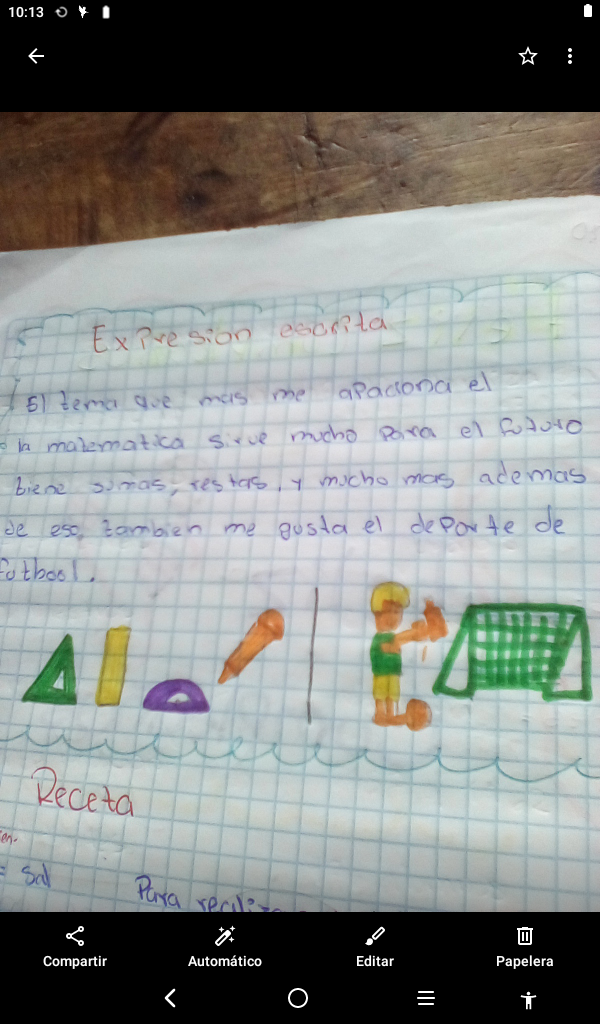 10:13
Expresion escrita
El tema que mas me apaciona el
la matematica sirve mucho para el futuro
biene sumas, restas, y mucho mas ademas
de eso, tambien me gusta el deporte de
futbool.
Receta
en-
= Sal
Para
Compartir
Automático
Editar
Papelera